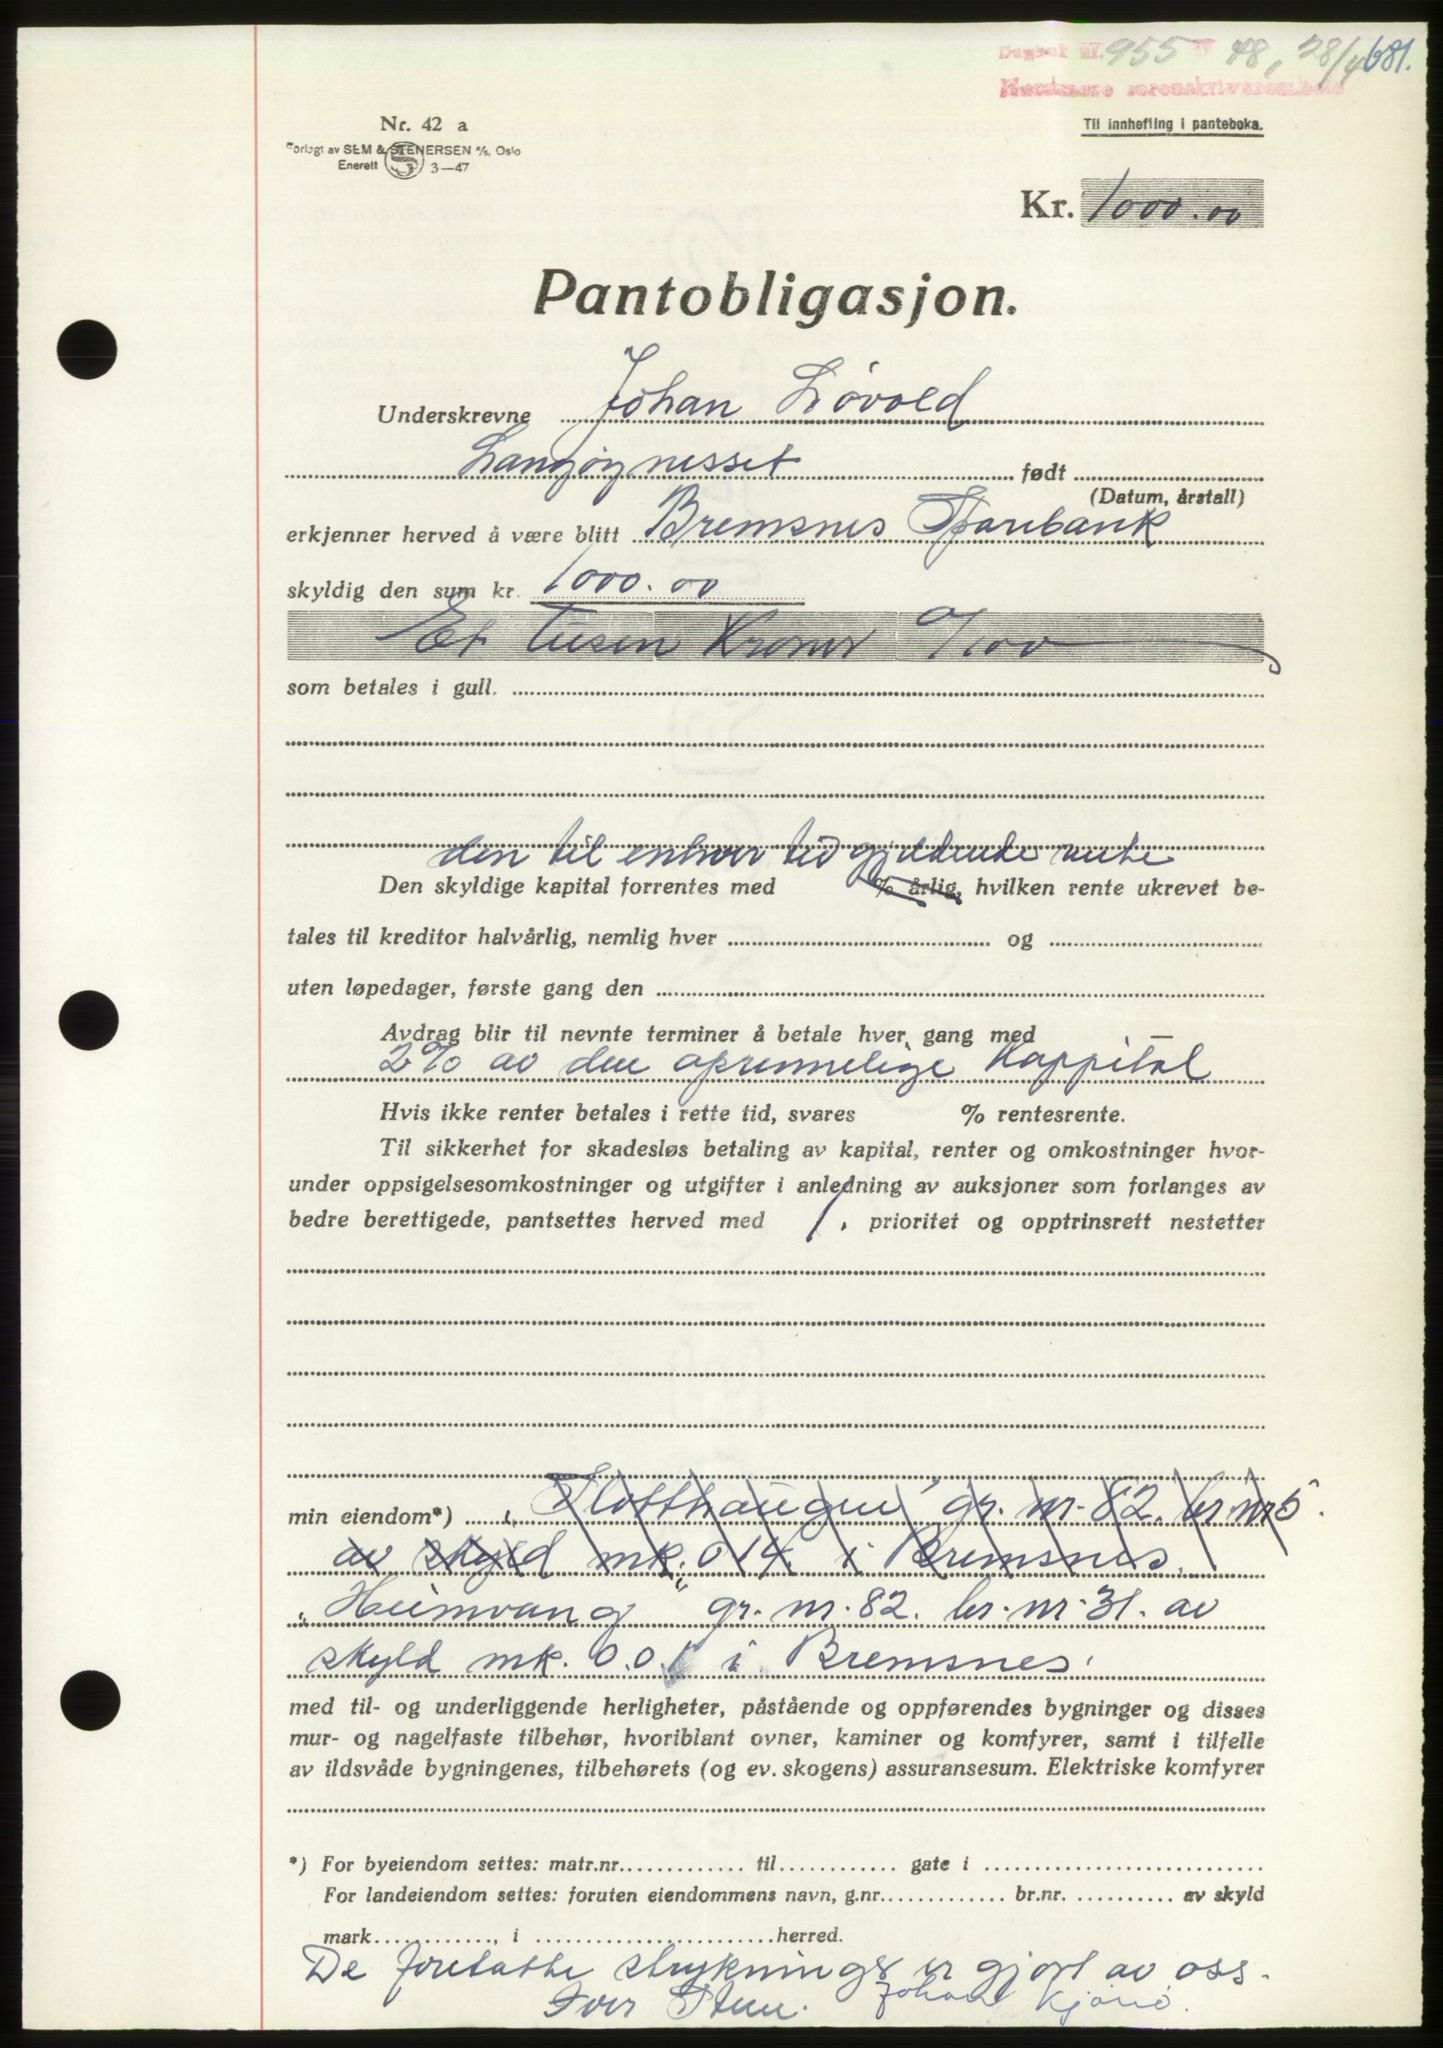 Dagbok nr. 955 48, 28/4 681.
Nordmøre sorenskriverembete
Nr. 42 a
Til innhefting i panteboka.
Forlagt av SEM & STENERSEN A/S, Oslo
Enerett 3—47
Kr. 1000.00
Pantobligasjon.
Underskrevne Johan Løvold
Langøynesset født
(Datum, årstall)
erkjenner herved å være blitt Bremsnes Sparebank
skyldig den sum kr. 1000.00
Et tusen Kroner 0/100
som betales i gull.
den til enhver tid gjeldende rente
Den skyldige kapital forrentes med % årlig, hvilken rente ukrevet be-
tales til kreditor halvårlig, nemlig hver og
uten løpedager, første gang den
Avdrag blir til nevnte terminer å betale hver gang med
2% av den oprinnelige Kappital
Hvis ikke renter betales i rette tid, svares % rentesrente.
Til sikkerhet for skadesløs betaling av kapital, renter og omkostninger hvor-
under oppsigelsesomkostninger og utgifter i anledning av auksjoner som forlanges av
bedre berettigede, pantsettes herved med 1. prioritet og opptrinsrett nestetter
min eiendom*) „Flatthaugen" gr. nr. 82. br. nr 5.
av skyld mk. 014. i Bremsnes.
„Heimvang" gr. nr. 82. br. nr. 31. av
skyld mk. 0.01 i Bremsnes.
med til- og underliggende herligheter, påstående og oppførendes bygninger og disses
mur- og nagelfaste tilbehør, hvoriblant ovner, kaminer og komfyrer, samt i tilfelle
av ildsvåde bygningenes, tilbehørets (og ev. skogens) assuransesum. Elektriske komfyrer
*) For byeiendom settes: matr.nr. til gate i
For landeiendom settes: foruten eiendommens navn, g.nr. br.nr. av skyld
mark , i herred.
De foretatte strykninger er gjort av oss.
Iver Johan